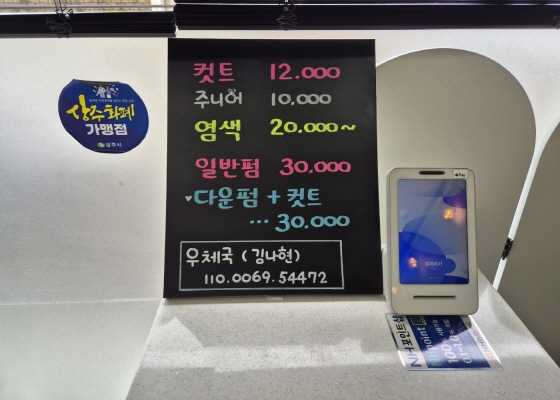 상주화폐
가맹점
상주시
컷트 12.000
주니어 10.000
염색 20.000~
일반펌 30.000
♥다운펌 + 컷트
... 30.000
우체국 (김나현)
110.0069.54472
Pay
NH포인트
point